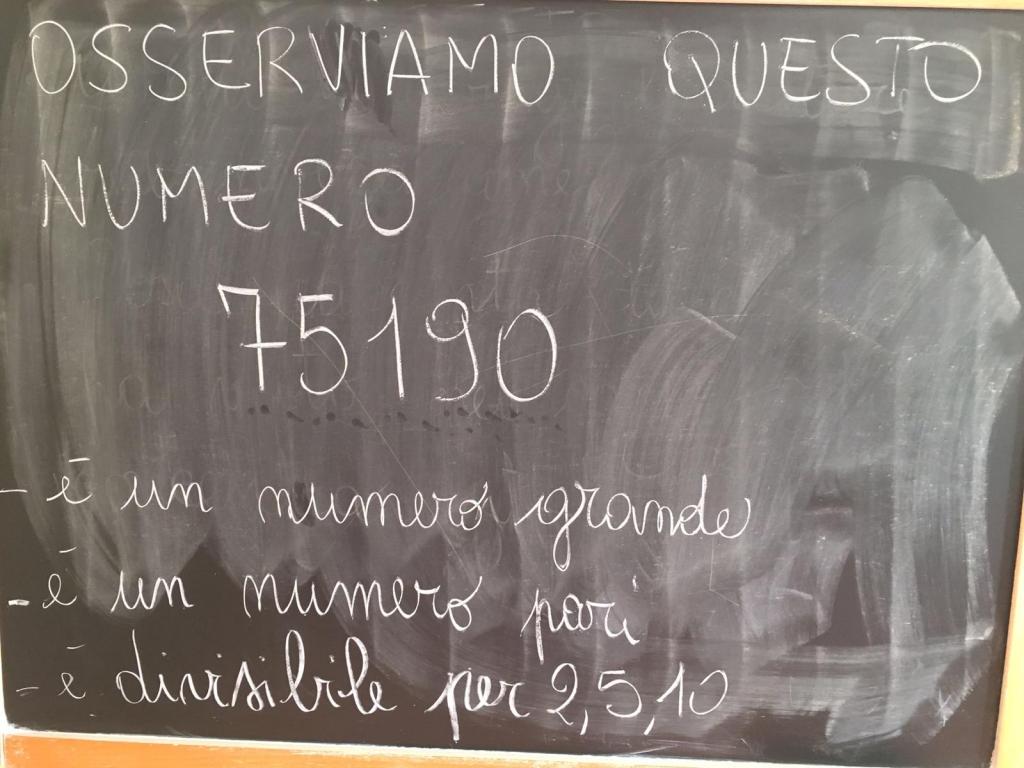 OSSERVIAMO QUESTO
NUMERO
75190
- è un numero grande
- è un numero pari
- è divisibile per 2, 5, 10